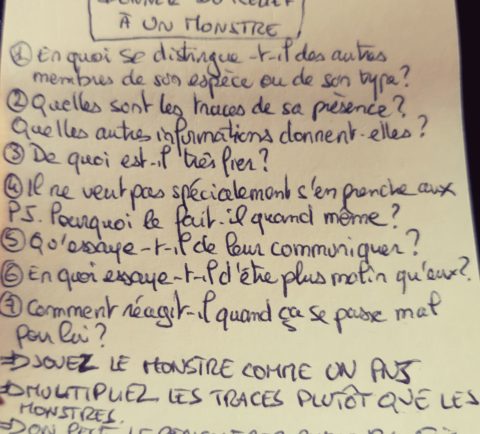 DONNER DU RELIEF
À UN MONSTRE
① En quoi se distingue-t-il des autres
membres de son espèce ou de son type?
② Quelles sont les traces de sa présence?
Quelles autres informations donnent-elles?
③ De quoi est-il très fier?
④ Il ne veut pas spécialement s'en prendre aux
PJ. Pourquoi le fait-il quand même?
⑤ Qu'essaye-t-il de leur communiquer?
⑥ En quoi essaye-t-il d'être plus malin qu'eux?
⑦ Comment réagit-il quand ça se passe mal
pour lui?
⇒ JOUEZ LE MONSTRE COMME UN PNJ
⇒ MULTIPLIEZ LES TRACES PLUTÔT QUE LES
MONSTRES.
⇒ ON PEUT LE